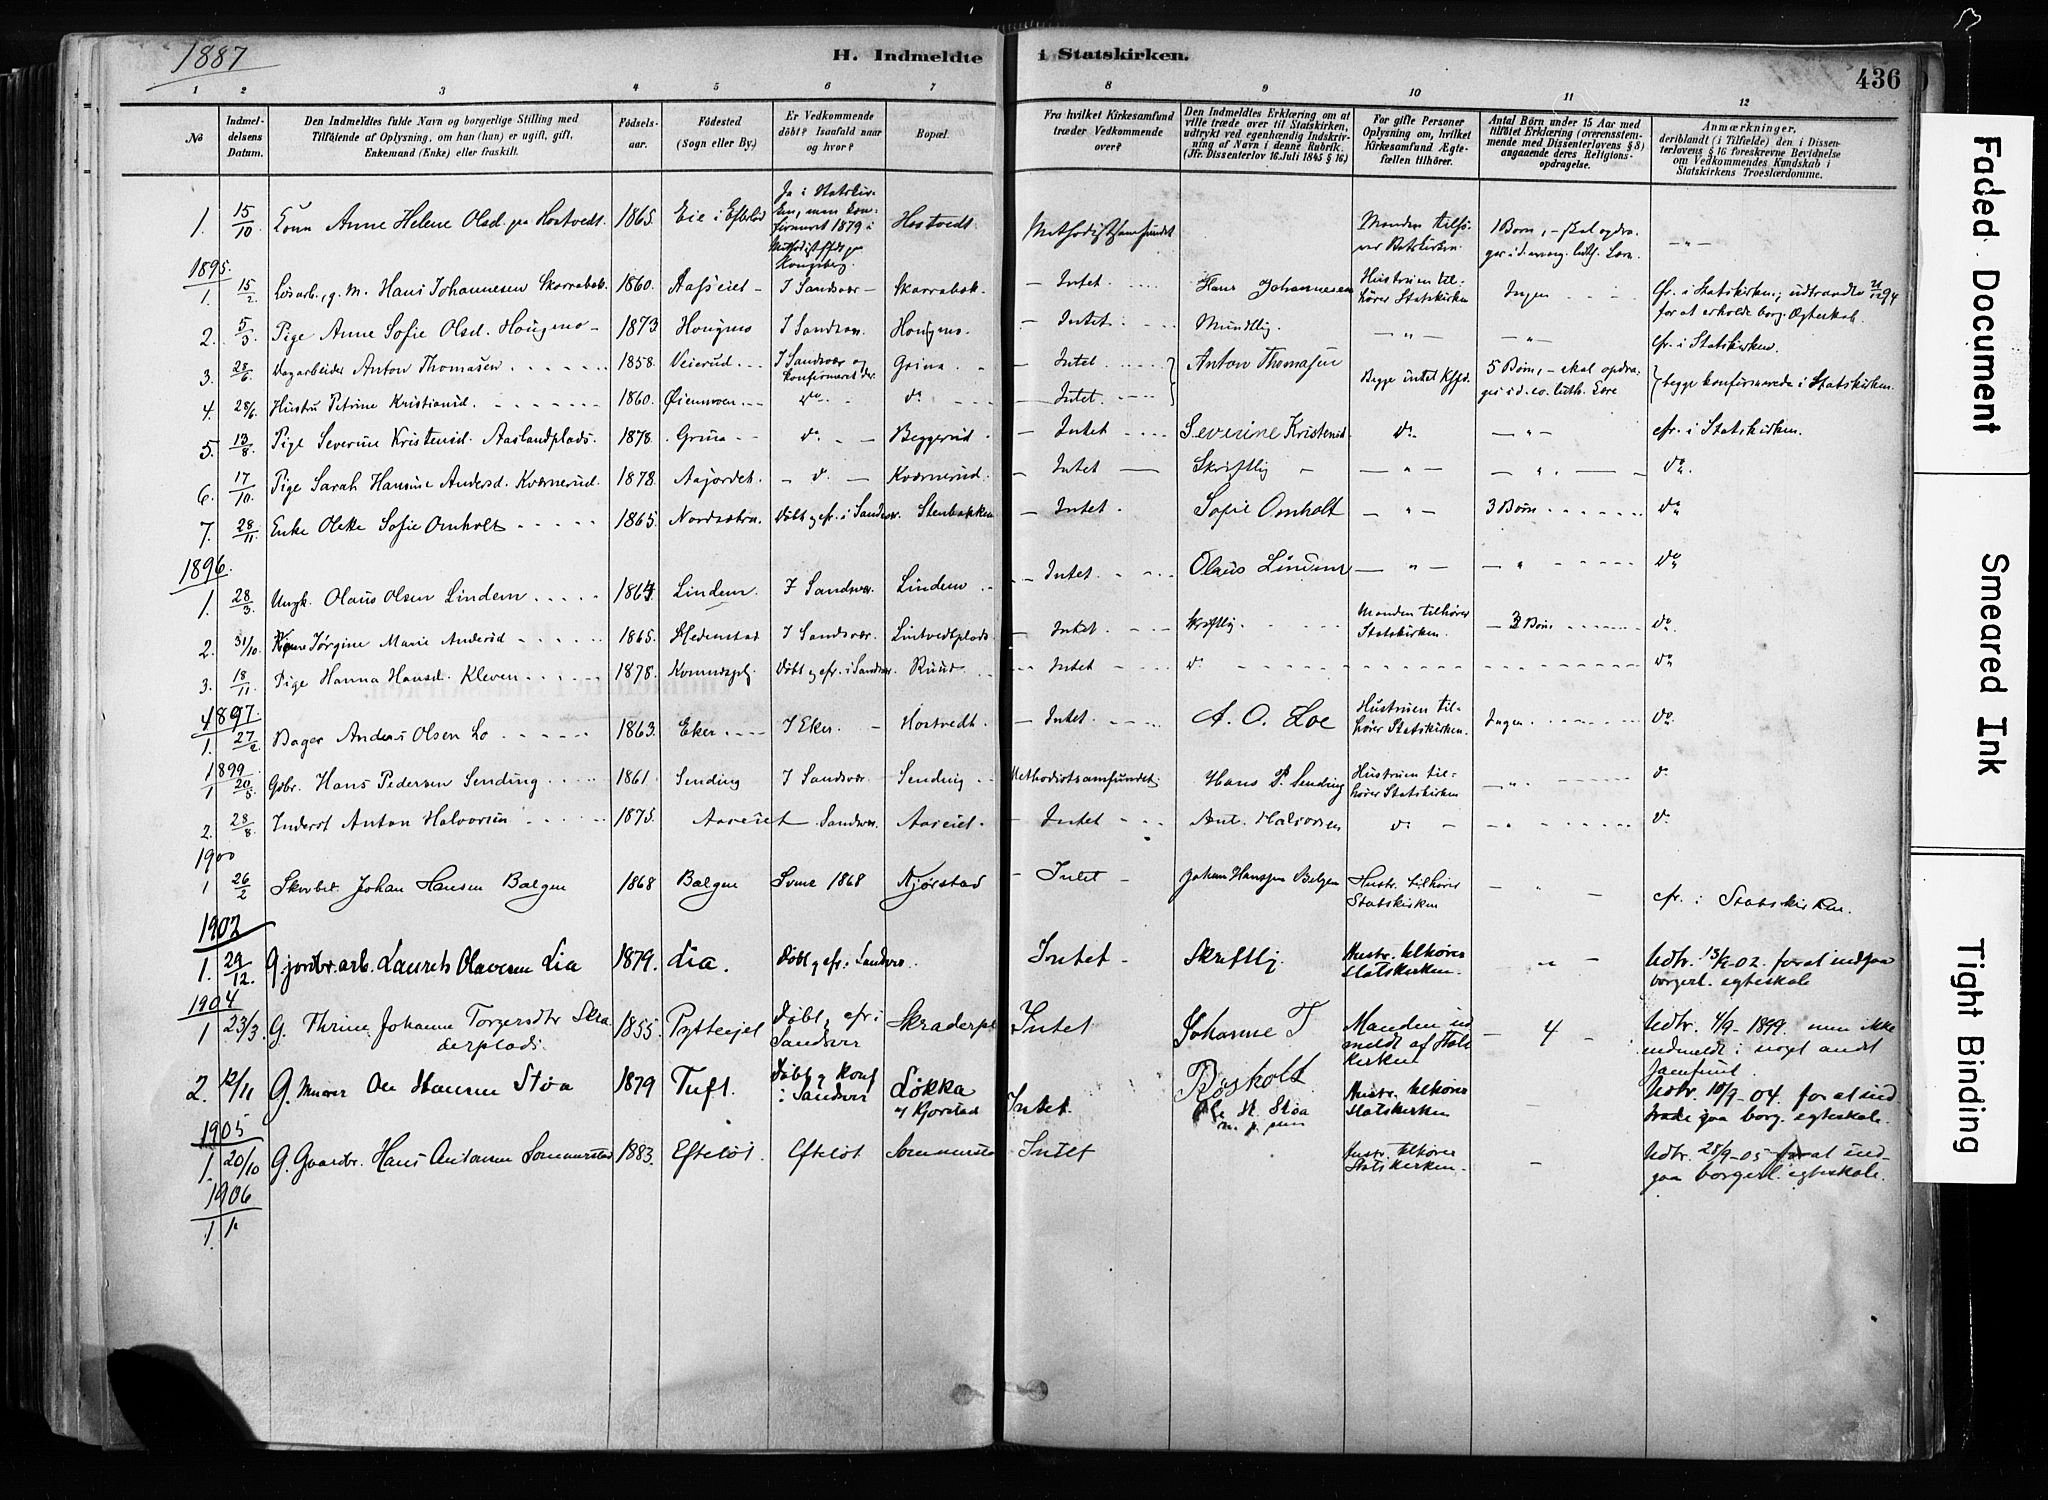 1887
H. Indmeldte i Statskirken.
436
1 2 3 4 5 6 7 8 9 10 11 12
No
Indmeldelsens Datum.
Den Indmeldtes fulde Navn og borgerlige Stilling med Tilføiende af Oplysning, om han (hun) er ugift, gift, Enkemand (Enke) eller fraskilt.
Fødselsaar.
Fødested (Sogn eller By.)
Er Vedkommende döbt? Isaafald naar og hvor?
Bopæl.
Fra hvilket Kirkesamfund træder Vedkommende over?
Den Indmeldtes Erklæring om at ville træde over til Statskirken, udtrykt ved egenhændig Indskrivning af Navn i denne Rubrik. (Jfr. Dissenterlov 16. Juli 1845 § 16.)
For gifte Personer Oplysning om, hvilket Kirkesamfund Ægtefællen tilhører.
Antal Børn under 15 Aar med tilføiet Erklæring (overensstemmende med Dissenterlovens § 8) angaaende deres Religionsopdragelse.
Anmærkninger, deriblandt (i Tilfælde) den i Dissenterlovens § 16 foreskrevne Bevidnelse om Vedkommendes Kundskab i Statskirkens Troeslærdomme.
1. 15/10 Kone Anne Helene Olsd. paa Hostvedt. 1865. Eie i Efteløt Ja i Statskirken, men konfirmeret 1879 i Methodistsfdt paa Kongsberg. Hostvedt. Methodistsamfundet Manden tilhører Statskirken. 1 Barn, - skal opdrages i d. evang. luth. Lære. - " -
1895.
1. 15/2 Løsarb., g. M. Hans Johannesen Skarrabæk. 1860. Aasseiet - I Sandsvær - Skarrabæk. - Intet. Hans Johannesen Hustruen tilhører Statskirken Ingen Cfr. i Statskirken; udtraadte 21/12 94 for at erholde borg. Ægteskab.
2. 5/3 Pige Anne Sofie Olsd. Hougmo - 1873 Hougmo I Sandsvær. Hougmo. - Intet. Mundtlig. - " - - " - Cfr. i Statskirken.
3. 28/6 Dagarbeider Anton Thomasen 1858. Veierud I Sandsvær og konfirmeret der. Grina. - Intet Anton Thomasen Begge intet Kfsfd. 5 Børn, - skal opdrages i d. ev. luth. Lære } begge konfirmerede i Statskirken.
4. 28/6 Hustru Petrine Kristiansd. 1860. Øienmoen do do Intet.
5. 13/8 Pige Severine Kristensd. Aaslandplads. 1878. Grina do - Beggerud - Intet Severine Kristensd do - " - cfr. i Statskirken.
6. 17/10 Pige Sarah Hansine Andersd. Kværnerud. 1878. Aajordet. - do - Kværnerud. - Intet - Skriftlig - " - - " - do
7. 28/11 Enke Olette Sofie Omholt 1865. Nordsetra. Døbt og cfr. i Sandsvær. Stenbakken - Intet. Sofie Omholt - " - 3 Børn do
1896.
1. 28/3 Ungk. Olaus Olsen Lindem 1864. Lindem. I Sandsvær. Lindem - Intet. Olaus Lindem - " - - " do
2. 31/10 Kone Jørgine Marie Andersd 1865. Hedenstad I Sandsvær. Lintvedtplads. - Intet. skriftlig. Manden tilhører Statskirken. - 3 Børn do
3. 18/11 Pige Hanna Hansd. Kleven 1878. Døbt og cfr. i Sandsvær. Ruud Intet do do
1897.
1. 27/2 Bager Anders Olsen Lo 1863. Eker I Eker. - Hostvedt. - Intet. A. O. Loe Hustruen tilhører Statskirken. Ingen do
1899.
1 20/5 Gdbr. Hans Pedersen Sending 1861. Sending I Sandsvær. Sending Methodistsamfundet. Hans P. Sending Hustruen tilhører Statskirken - " do
2. 28/8 Inderst Anton Halvorsen 1875. Aaseiet Sandsvær. Aaseiet. - Intet Ant. Halvorsen do - do
1900
1 26/2 Johan Hansen Bølgen 1868 Bølgen 1868 Kjørstad - Intet - Johan Hanssen Hustr. tilhører Statskirken - " - cfr. i Statskirken.
1902
1. 29/12. G. jordbr. arb. Laurets Olavesen Lia 1879. Lia. Døbt og cfr. i Sandsvær. Intet - Skriftlig. Hustr. tilhører Statskirken. " - Udtr. 13/9-02. for at indgaa borgerl. egteskab
1904
1 23/3. G. Thrine Johanne Torgersdtr Skraderplads. 1855. Pytteeiet Døbt og cfr i Sandsvær Skraderpl Intet Johanne T Røsholt Manden indmeldt af Statskirken - 4 - Udtr. 4/9-1899. men ikke indmeldt i noget andet samfund
2. 12/11 G. Murer Ole Hansen Støa 1879 Tuft. Døbt og konf i Sandsvær Løkka u/ Kjørstad Intet. Ole H. Støa m. p. pen Hustr. tilhører Statskirken - Udtr. 10/9-04. for at indtræde gaa borg. egteskab.
1905
1. 20/10 G. Gaardbr. Hans Antonsen Sommerstad 1883. Efteløt. Efteløt Sommerstad Intet Hustr. tilhører Statskirken. - Udtr. 28/9-05 for at indgaa borgerl. egteskab.
1906
1. 1
Faded Document
Smeared Ink
Tight Binding